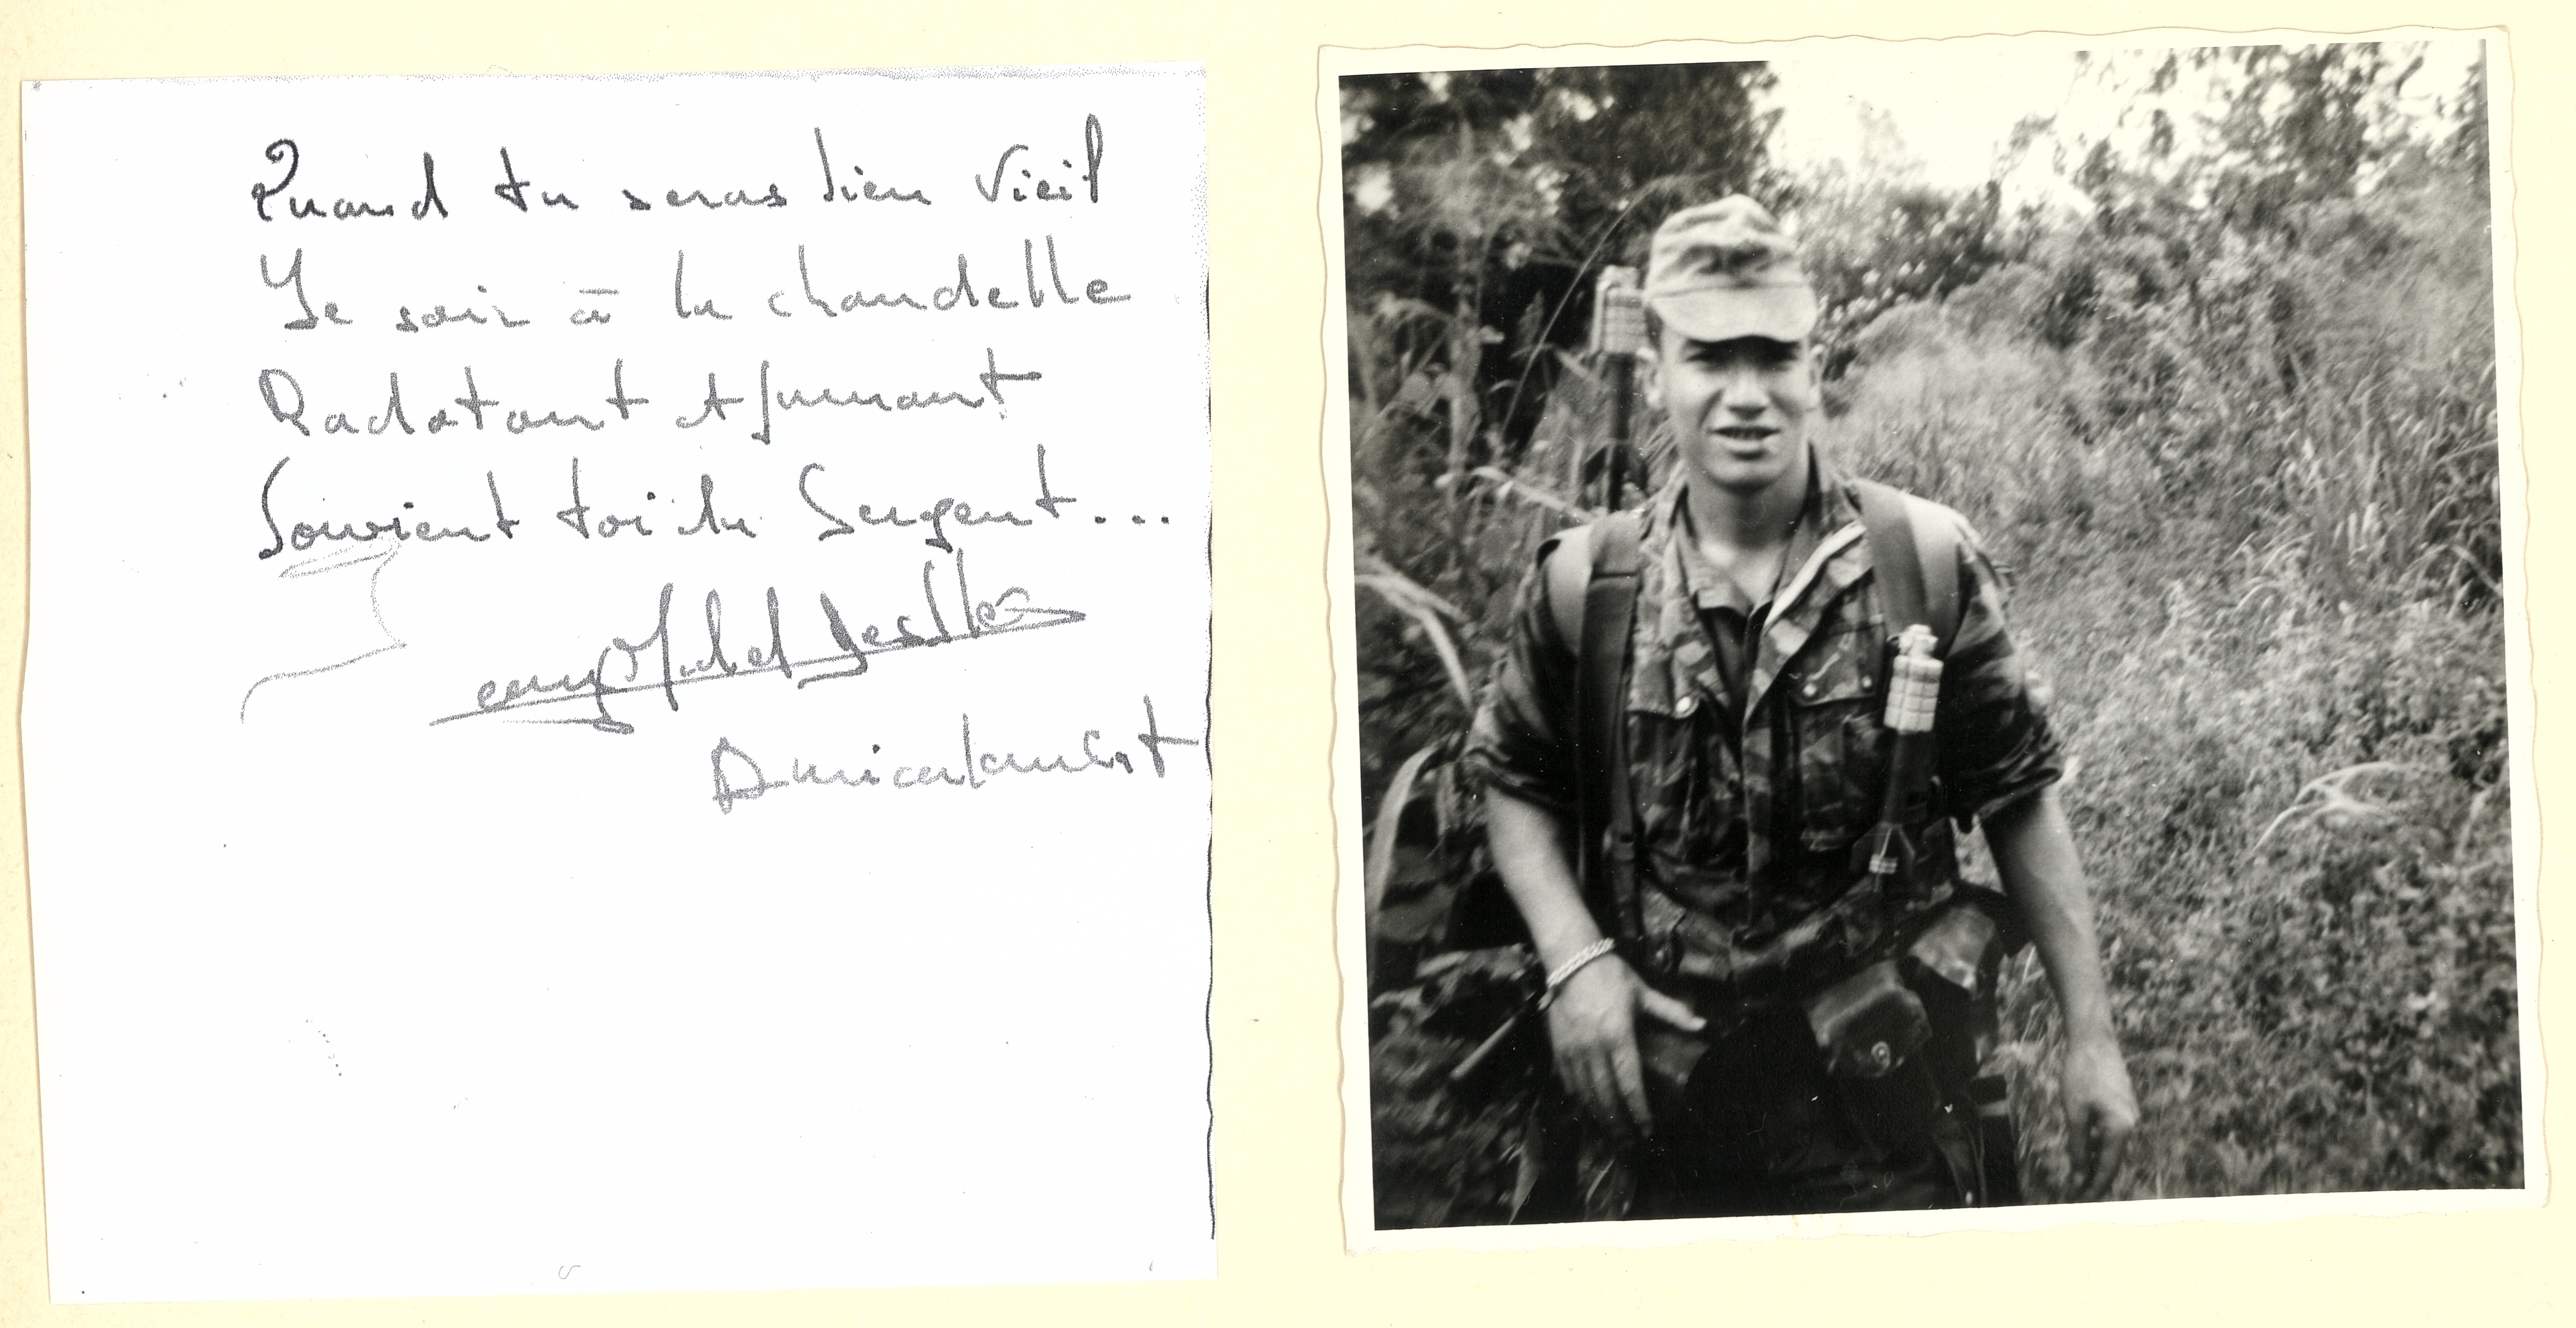 Quand tu seras bien vieil
Le soir à la chandelle
Radotant et fumant
Souvient toi du Sergent...
Michel
Amicalement